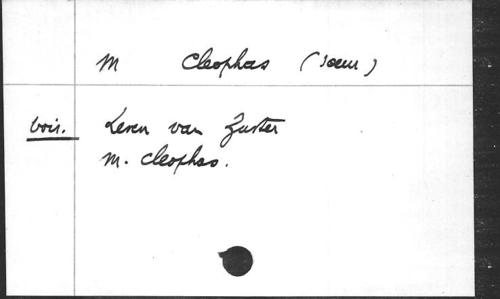 M Cleophas (soeur)
voir. Leven van Zuster
M. Cleophas.